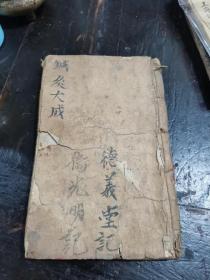 鍼灸大成
德義堂記
陶光明記